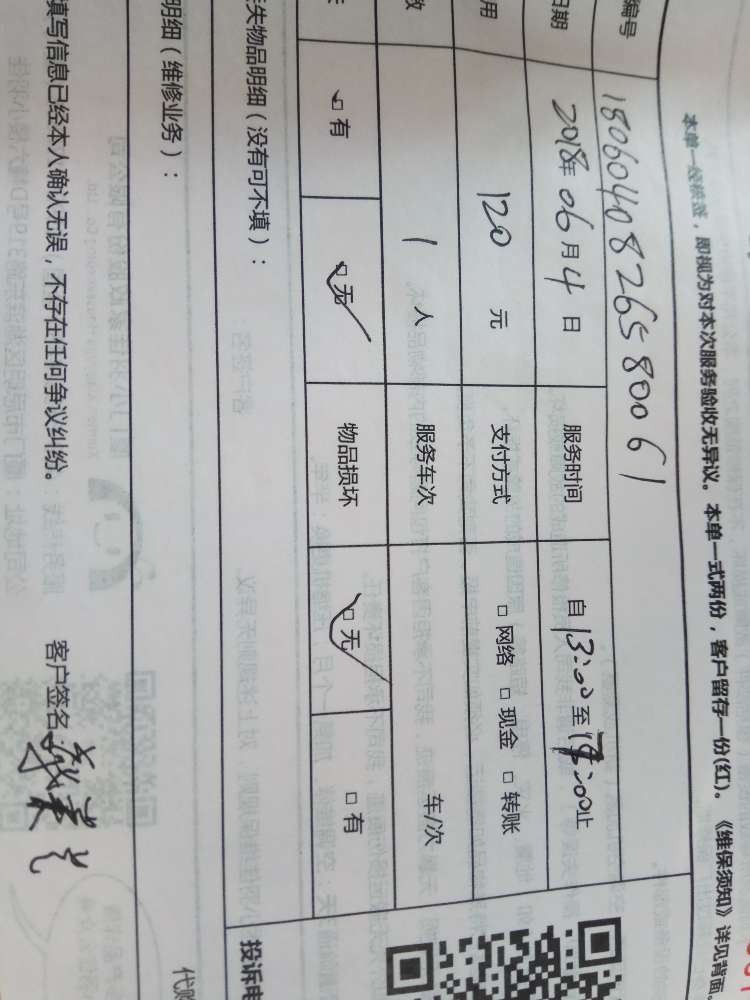 本单一经核签，即视为对本次服务验收无异议。本单一式两份，客户留存一份(红)。《维保须知》详见背面
编号 18060408265580061
日期 2018年06月4日 服务时间 自13:00至 :00止
用 120 元 支付方式 □网络 □现金 □转账
数 1 人 服务车次 车/次
□有 □无 物品损坏 □无 □有
失物品明细（没有可不填）：
投诉电
明细（维修业务）：
填写信息已经本人确认无误，不存在任何争议纠纷。 客户签名